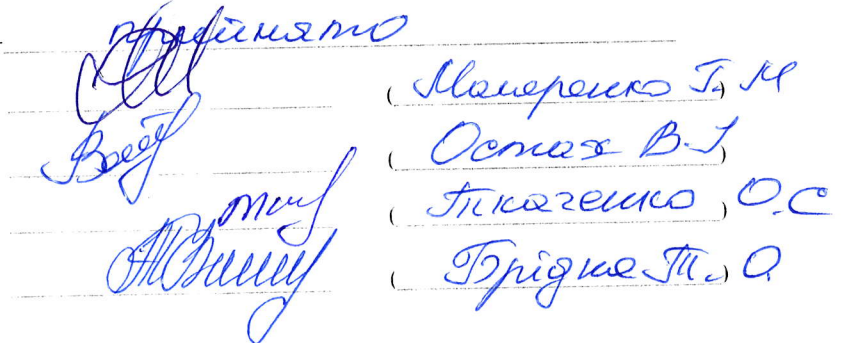 прийнято
( Макаренко Г.) М
( Остах В.І)
( Ткаченко ) О.С
( Брідня Т.) О.